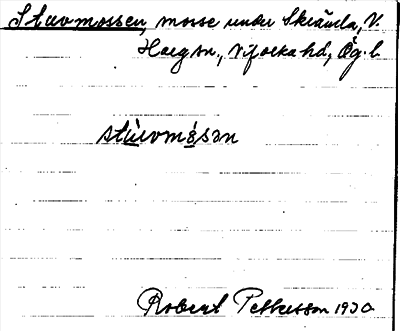 Stuvmossen, mosse under Skrämla, V.
Haeg sn., Vifolka hd, Ög. l.
stùvmósən
Robert Pettersson 1930